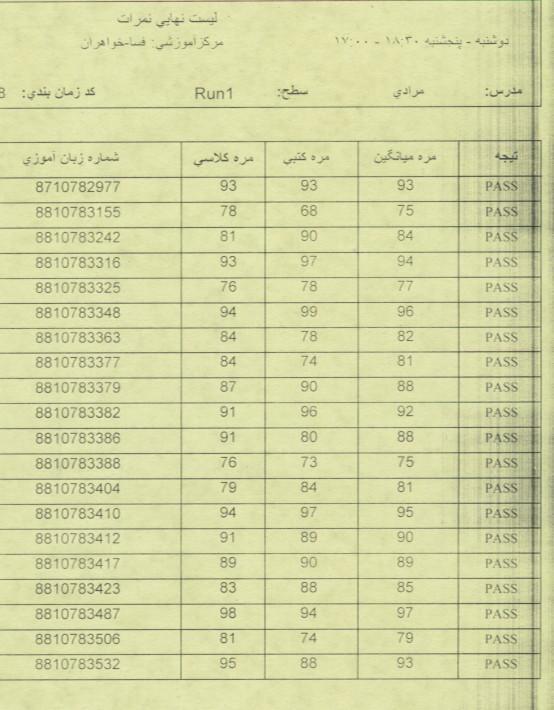 ليست نهايي نمرات
مرکزآموزشي: فسا-خواهران
دوشنبه - پنجشنبه ۱۸:۳۰ - ۱۷:۰۰
مدرس: مرادي سطح: Run1 کد زمان بندي: 8
تيجه مره ميانگين مره کتبي مره کلاسي شماره زبان آموزي
PASS 93 93 93 8710782977
PASS 75 68 78 8810783155
PASS 84 90 81 8810783242
PASS 94 97 93 8810783316
PASS 77 78 76 8810783325
PASS 96 99 94 8810783348
PASS 82 78 84 8810783363
PASS 81 74 84 8810783377
PASS 88 90 87 8810783379
PASS 92 96 91 8810783382
PASS 88 80 91 8810783386
PASS 75 73 76 8810783388
PASS 81 84 79 8810783404
PASS 95 97 94 8810783410
PASS 90 89 91 8810783412
PASS 89 90 89 8810783417
PASS 85 88 83 8810783423
PASS 97 94 98 8810783487
PASS 79 74 81 8810783506
PASS 93 88 95 8810783532